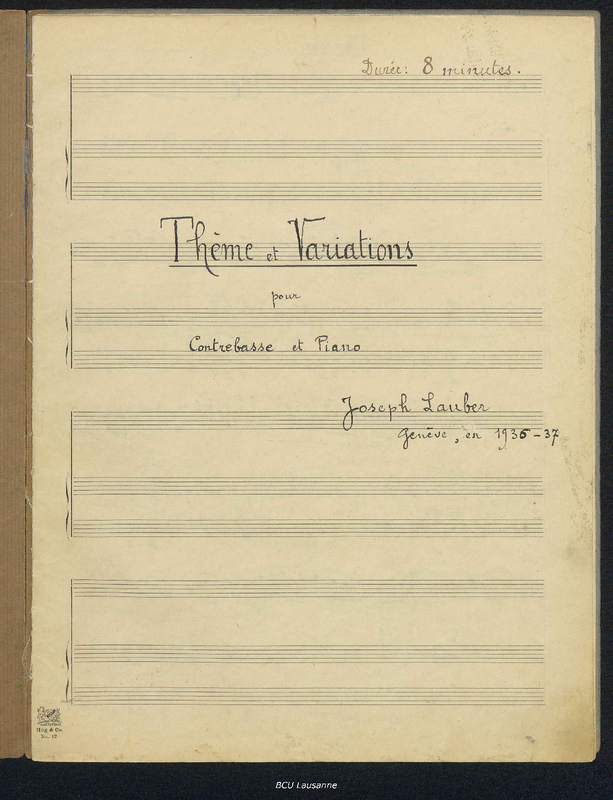 Durée: 8 minutes.
Thème et Variations
pour
Contrebasse et Piano
Joseph Lauber
Genève, en 1936-37
Hug & Co.
No. 12
BCU Lausanne